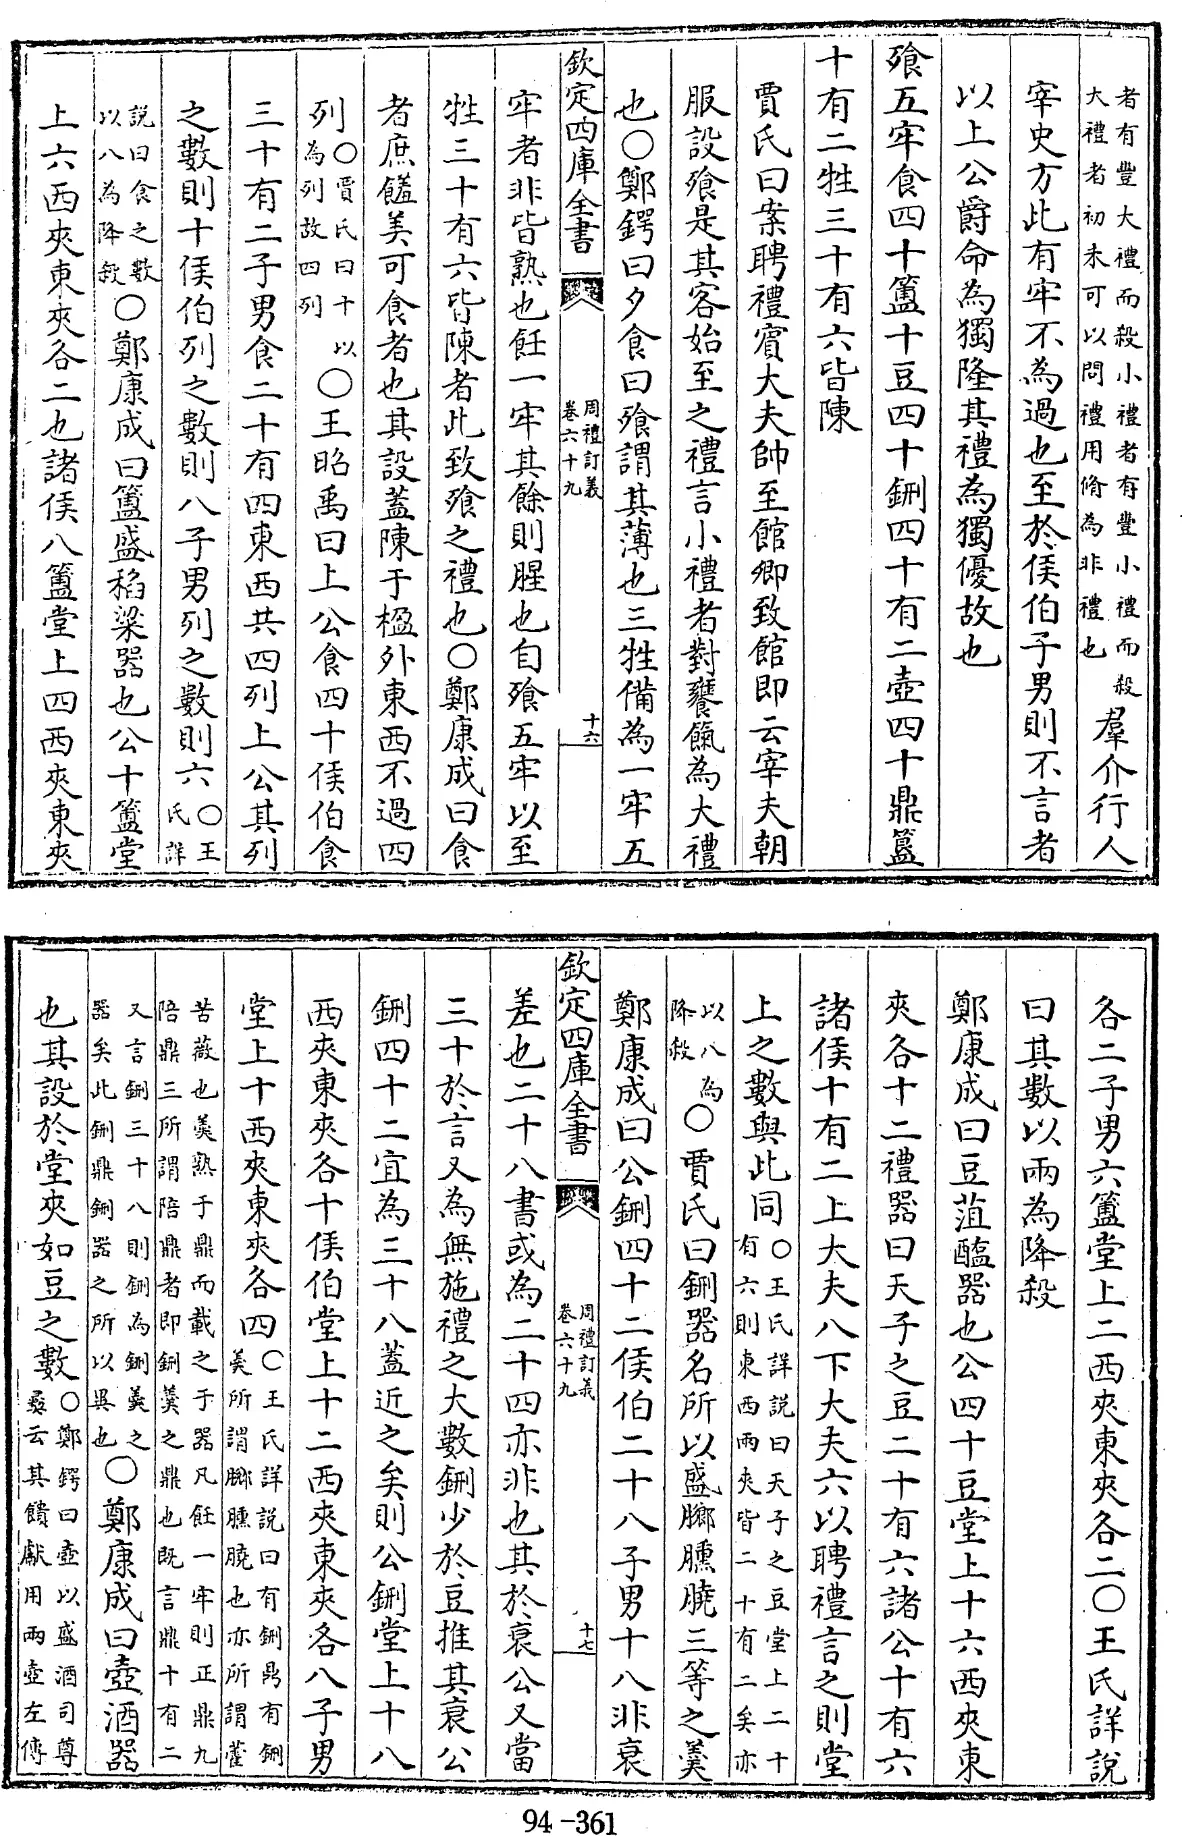 者有豐大禮而殺小禮者有豐小禮而殺
大禮者初未可以問禮用脩為非禮也
羣介行人
宰史方此有牢不為過也至於侯伯子男則不言者
以上公爵命為獨隆其禮為獨優故也
飱五牢食四十簠十豆四十鉶四十有二壺四十鼎簋
十有二牲三十有六皆陳
賈氏曰案聘禮賓大夫帥至館卿致館即云宰夫朝
服設飱是其客始至之禮言小禮者對饔餼為大禮
也〇鄭鍔曰夕食曰飱謂其薄也三牲備為一牢五
欽定四庫全書
周禮訂義
卷六十九
十六
牢者非皆熟也飪一牢其餘則腥也自飱五牢以至
牲三十有六皆陳者此致飱之禮也〇鄭康成曰食
者庶羞美可食者也其設蓋陳于楹外東西不過四
列
〇賈氏曰十以
為列故四列
〇王昭禹曰上公食四十侯伯食
三十有二子男食二十有四東西共四列上公其列
之數則十侯伯列之數則八子男列之數則六
〇王
氏詳
說曰食之數
以八為降殺
〇鄭康成曰簠盛稻粱器也公十簠堂
上六西夾東夾各二也諸侯八簠堂上四西夾東夾
各二子男六簠堂上二西夾東夾各二〇王氏詳說
曰其數以兩為降殺
鄭康成曰豆菹醢器也公四十豆堂上十六西夾東
夾各十二禮器曰天子之豆二十有六諸公十有六
諸侯十有二上大夫八下大夫六以聘禮言之則堂
上之數與此同
〇王氏詳說曰天子之豆堂上二十
有六則東西兩夾皆二十有二矣亦
以八為
降殺
〇賈氏曰鉶器名所以盛膷臐膮三等之羹
鄭康成曰公鉶四十二侯伯二十八子男十八非衰
欽定四庫全書
周禮訂義
卷六十九
十七
差也二十八書或為二十四亦非也其於衰公又當
三十於言又為無施禮之大數鉶少於豆推其衰公
鉶四十二宜為三十八蓋近之矣則公鉶堂上十八
西夾東夾各十侯伯堂上十二西夾東夾各八子男
堂上十西夾東夾各四
〇王氏詳說曰有鉶鼎有鉶
羹所謂膷臐膮也亦所謂藿
苦薇也羹熟于鼎而載之于器凡飪一牢則正鼎九
陪鼎三所謂陪鼎者即鉶羹之鼎也既言鼎十有二
又言鉶三十八則鉶為鉶羹之
器矣此鉶鼎鉶器之所以異也
〇鄭康成曰壺酒器
也其設於堂夾如豆之數
〇鄭鍔曰壺以盛酒司尊
彝云其饋獻用兩壺左傳
94-361